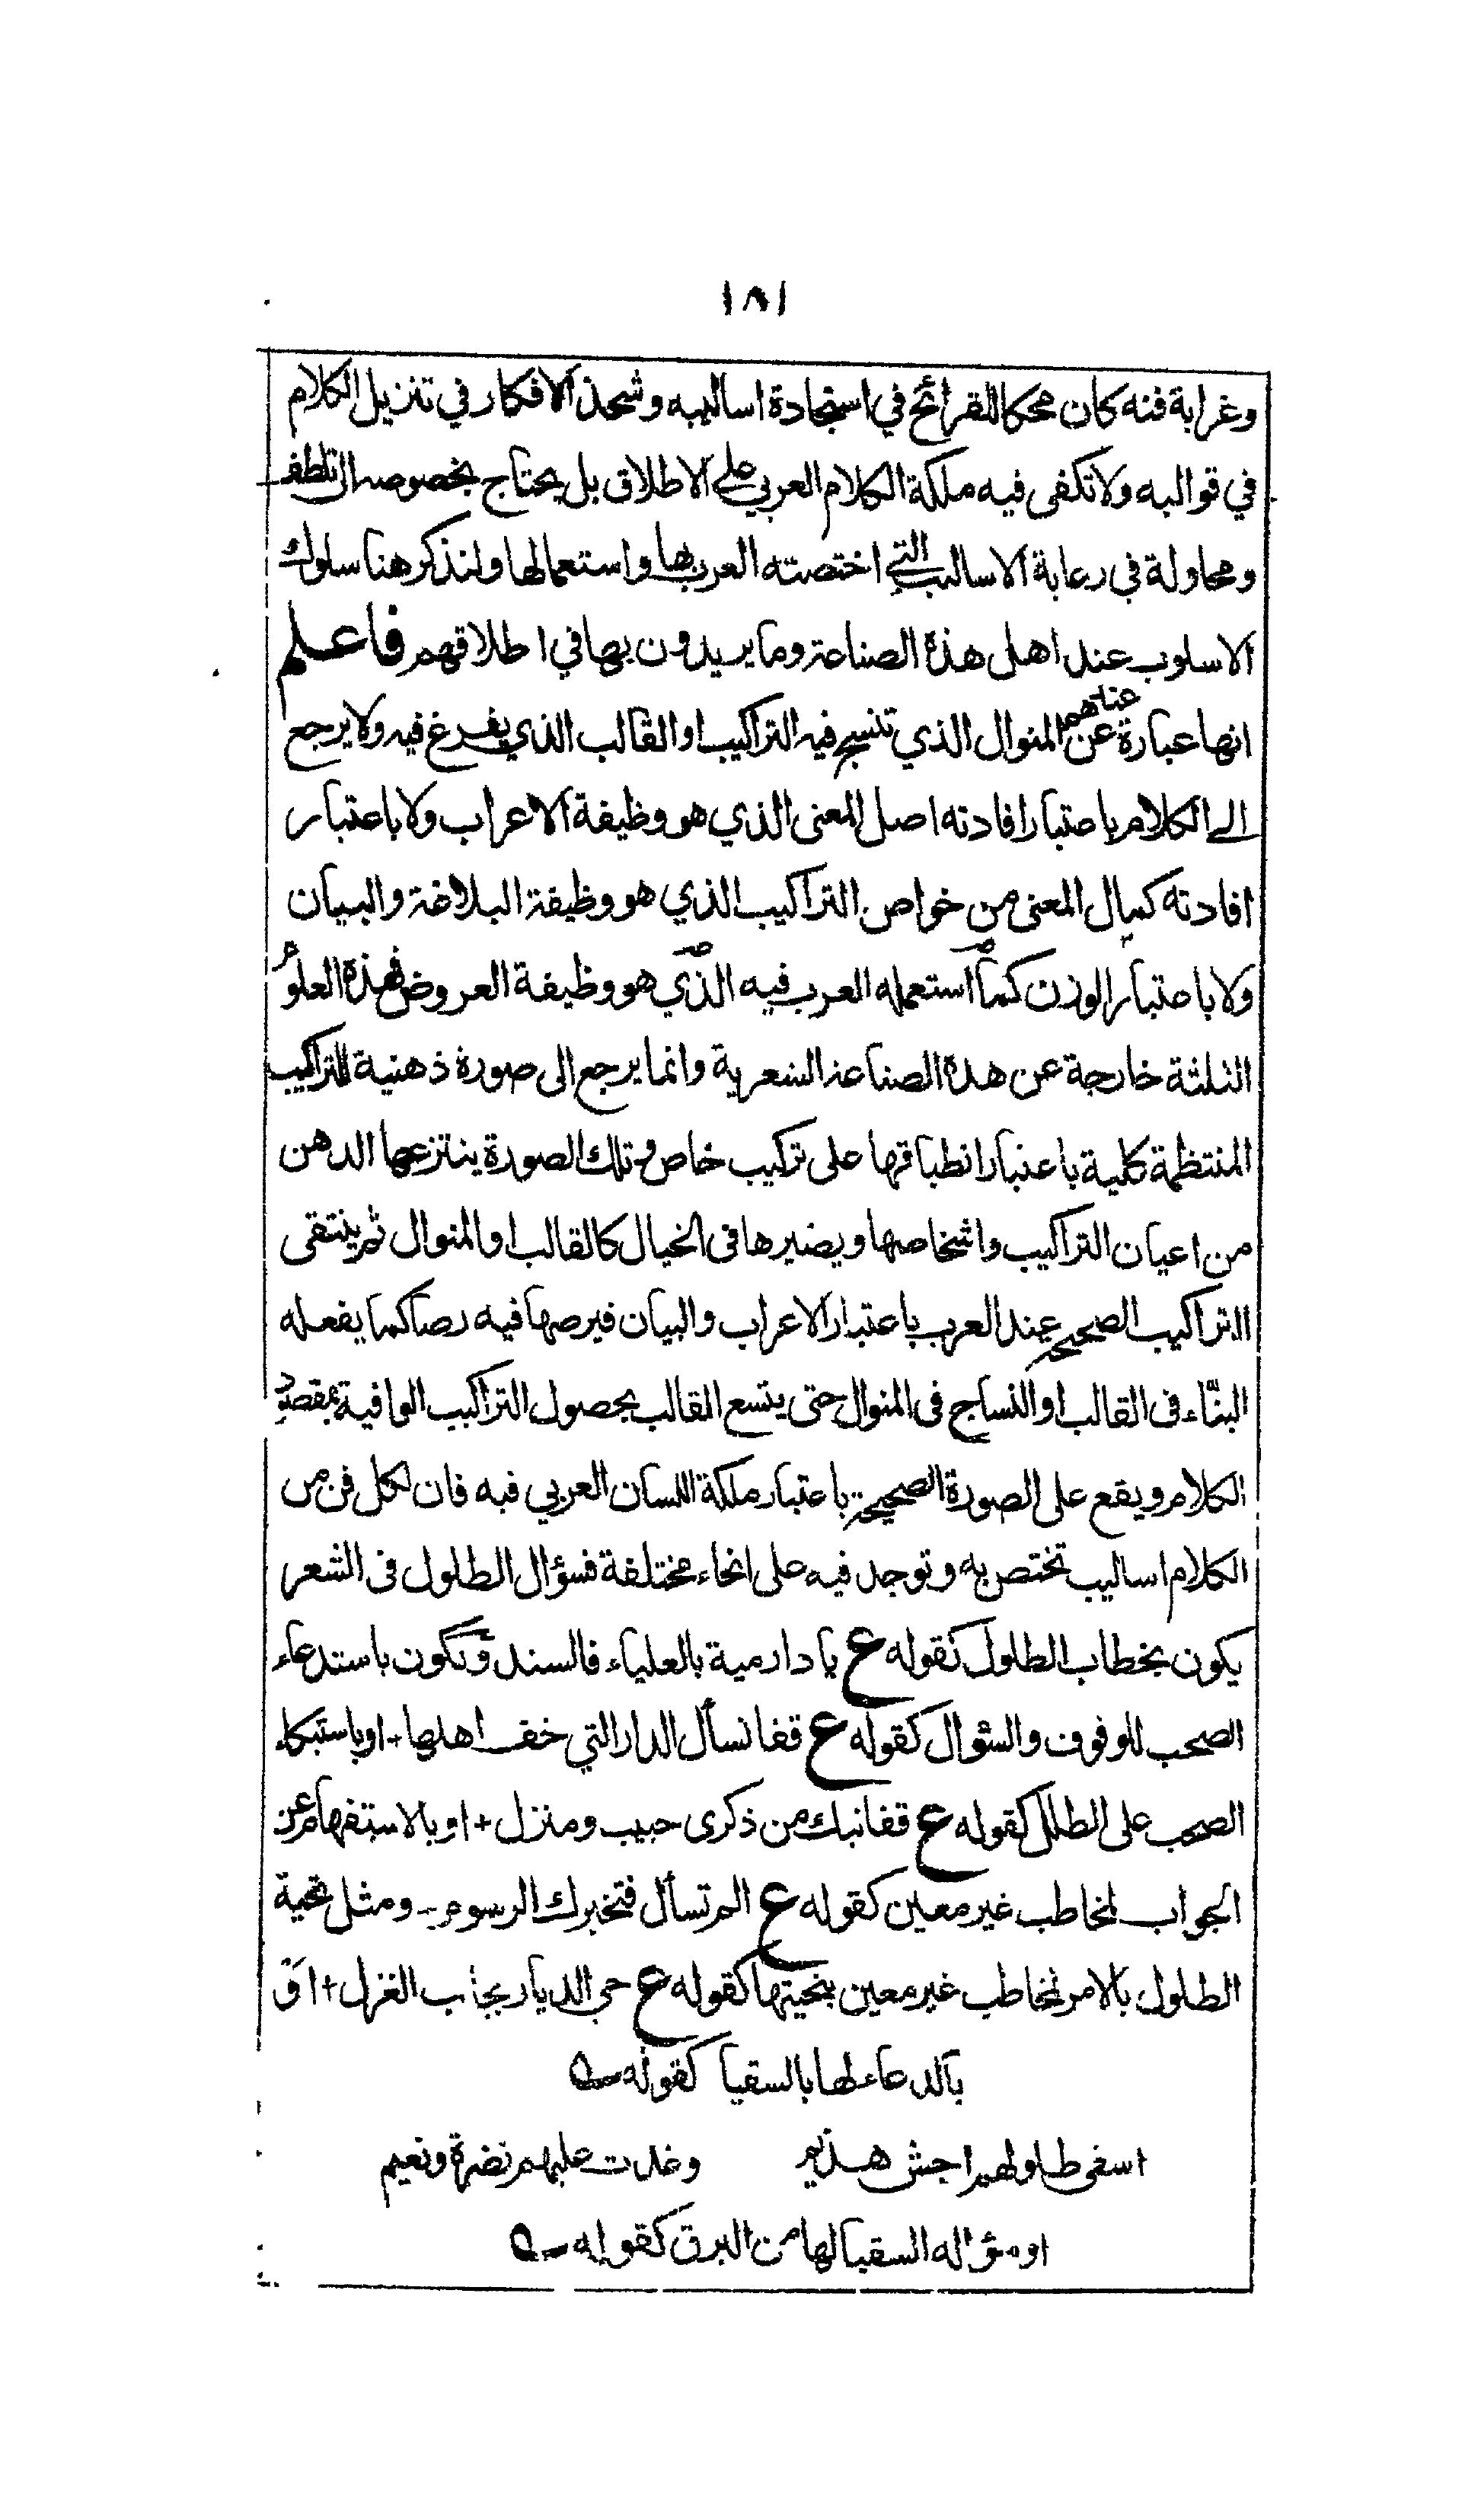 ١٨١
وغرابة فنه كان محكا للقرائح في استجادة اساليبه وشحذ الافكار في تنزيل الكلام
في قوالبه ولا تكفى فيه ملكة الكلام العربي على الاطلاق بل يحتاج بخصوصه الى تلطف
ومحاولة في رعاية الاساليب التي اختصته العرب بها واستعمالها ولنذكر هنا سلوك
الاسلوب عند اهل هذه الصناعة وما يريدون بها في اطلاقهم فاعلم
انها عبارة عندهم عن المنوال الذي تنسج فيه التراكيب او القالب الذي يفرغ فيه ولا يرجع
الى الكلام باعتبار افادته اصل المعنى الذي هو وظيفة الاعراب ولا باعتبار
افادته كمال المعنى من خواص التراكيب الذي هو وظيفة البلاغة والبيان
ولا باعتبار الوزن كما استعمله العرب فيه الذي هو وظيفة العروض فهذه العلوم
الثلثة خارجة عن هذه الصناعة الشعرية وانما يرجع الى صورة ذهنية للتراكيب
المنتظمة كلية باعتبار انطباقها على تركيب خاص وتلك الصورة ينتزعها الذهن
من اعيان التراكيب واشخاصها ويصيرها في الخيال كالقالب او المنوال ثم ينتقى
التراكيب الصحيحة عند العرب باعتبار الاعراب والبيان فيرصها فيه رصا كما يفعله
البنّاء في القالب او النساج في المنوال حتى يتسع القالب بحصول التراكيب الوافية بمقصود
الكلام ويقع على الصورة الصحيحة باعتبار ملكة اللسان العربي فيه فان لكل فن من
الكلام اساليب تختص به وتوجد فيه على انحاء مختلفة فسؤال الطلول في الشعر
يكون بخطاب الطلول كقوله ع يا دار مية بالعلياء فالسند وتكون باستدعاء
الصحب للوقوف والسؤال كقوله ع قفا نسأل الدار التي خف اهلها + او باستبكاء
الصحب على الطلل كقوله ع قفا نبك من ذكرى حبيب ومنزل + او بالاستفهام عن
الجواب لمخاطب غير معين كقوله ع الم تسأل فتخبرك الرسوم - ومثل تحية
الطلول بالامر لمخاطب غير معين بتحيتها كقوله ع حي الديار بجانب الغزل + او
بالدعاء لها بالسقيا كقوله ه
اسقى طلولهم اجش هذيم وغدت عليهم نضرة ونعيم
او سؤاله السقيا لها من البرق كقوله ه